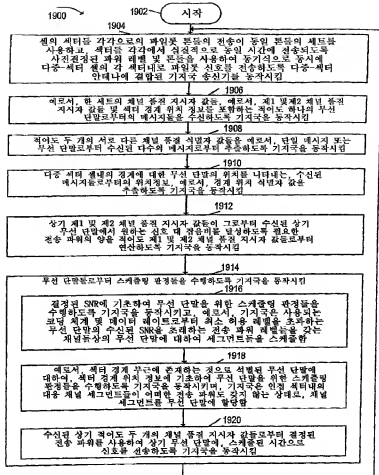 1900
1902
시작
1904
셀의 섹터들 각각으로의 파일롯 톤들의 전송이 동일 톤들의 세트를
사용하고, 섹터들 각각에서 실질적으로 동일 시간에 전송되도록
사전결정된 파워 레벨 및 톤들을 사용하여 동기식으로 동시에
다중-섹터 셀의 각 섹터내로 파일롯 신호를 전송하도록 다중-섹터
안테나에 결합된 기지국 송신기를 동작시킴
1906
예로서, 한 세트의 채널 품질 지시자 값들, 예로서, 제1 및 제2 채널 품질
지시자 값들 및 섹터 경계 위치 정보를 포함하는 적어도 하나의 무선
단말로부터의 메시지들을 수신하도록 기지국을 동작시킴
1908
적어도 두개의 서로 다른 채널 품질 식별자 값들을 예로서, 단일 메시지 또는
무선 단말로부터 수신된 다수의 메시지로부터 추출하도록 기지국을 동작시킴
1910
다중 섹터 셀내의 경계에 대한 무선 단말의 위치를 나타내는, 수신된
메시지들로부터의 위치정보, 예로서, 경계 위치 식별자 값을
추출하도록 기지국을 동작시킴
1912
상기 제1 및 제2 채널 품질 지시자 값들이 그로부터 수신된 상기
무선 단말에서 원하는 신호 대 잡음비를 달성하도록 필요한
전송 파워의 양을 적어도 제1 및 제2 채널 품질 지시자 값들로부터
연산하도록 기지국을 동작시킴
1914
무선 단말들로부터 스케줄링 판정들을 수행하도록 기지국을 동작시킴
1916
결정된 SNR에 기초하여 무선 단말을 위한 스케줄링 판정들을
수행하도록 기지국을 동작시키고, 예로서, 기지국은 사용되는
코딩 체계 및 데이터 레이트로부터 최소 허용 레벨을 초과하는
무선 단말의 수신된 SNR을 초래하는 전송 파워 레벨들을 갖는
채널들상의 무선 단말에 대하여 세그먼트들을 스케줄함
1918
예로서, 섹터 경계 부근에 존재하는 것으로 식별된 무선 단말에
대하여, 섹터 경계 위치 정보에 기초하여 무선 단말을 위한 스케줄링
판정들을 수행하도록 기지국을 동작시키며, 기지국은 인접 섹터내의
대응 채널 세그먼트들이 어떠한 전송 파워도 갖지 않는 상태로, 채널
세그먼트를 무선 단말에 할당함
1920
수신된 상기 적어도 두 개의 채널 품질 지시자 값들로부터 결정된
전송 파워를 사용하여 상기 무선 단말에, 스케줄링된 시간으로
신호를 전송하도록 기지국을 동작시킴